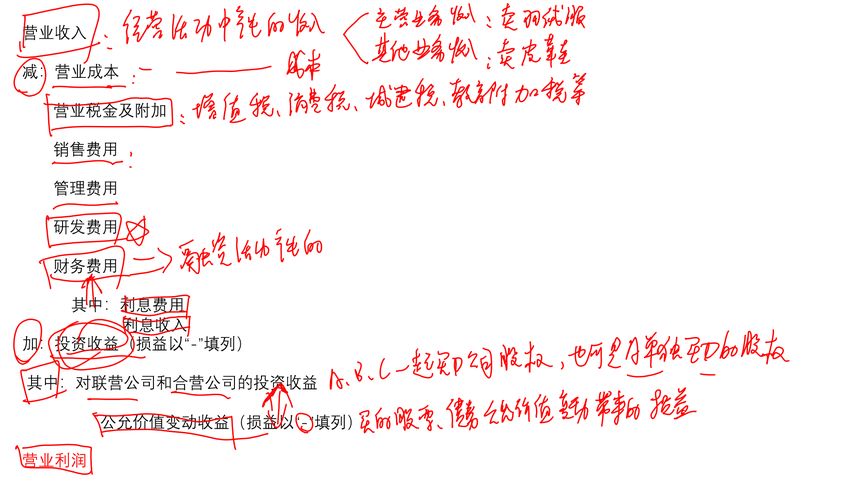 营业收入：经营活动中产生的收入 主营业务收入：卖羽绒服
其他业务收入：卖皮鞋
减：营业成本：— 成本
营业税金及附加：增值税、消费税、城建税、教育附加税等
销售费用：
管理费用
研发费用
财务费用 融资活动产生的
其中：利息费用
利息收入
加：投资收益（损益以“-”填列）
其中：对联营公司和合营公司的投资收益 A、B、C一起买D公司股权，也可是A单独买D的股权
公允价值变动收益（损益以“-”填列）买的股票、债券公允价值变动带来的损益
营业利润